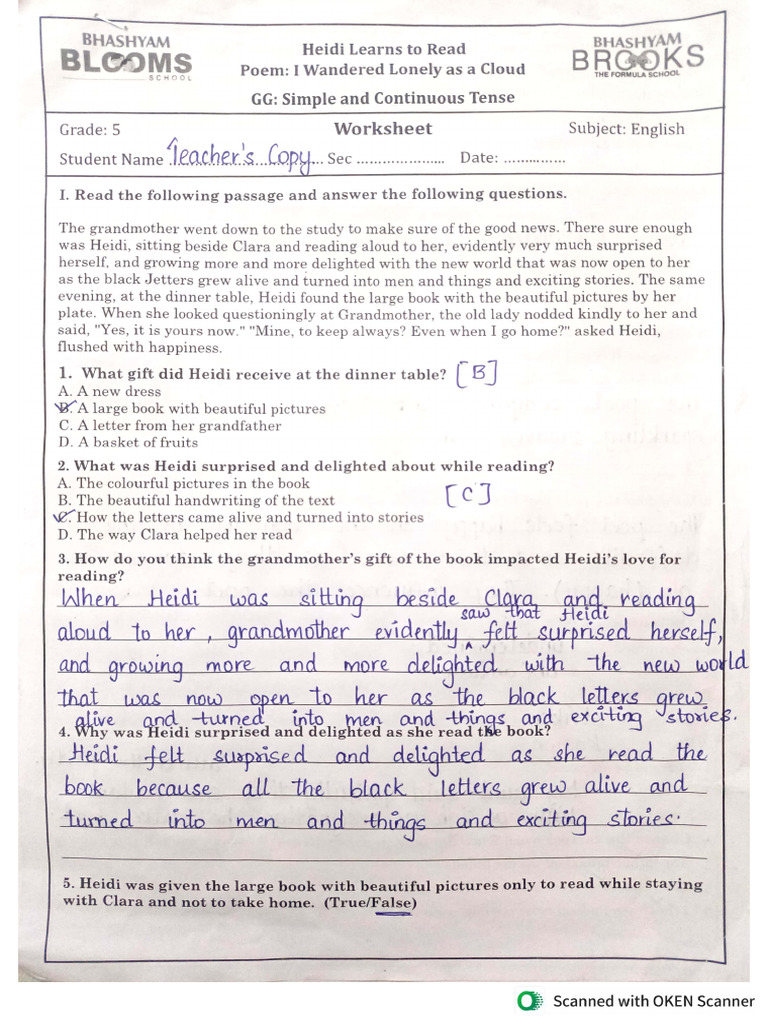 BHASHYAM
BLOOMS
SCHOOL
Heidi Learns to Read
Poem: I Wandered Lonely as a Cloud
GG: Simple and Continuous Tense
BHASHYAM
BROOKS
THE FORMULA SCHOOL
Grade: 5 Worksheet Subject: English
Student Name Teacher's Copy Sec ..................... Date: ...............
I. Read the following passage and answer the following questions.
The grandmother went down to the study to make sure of the good news. There sure enough
was Heidi, sitting beside Clara and reading aloud to her, evidently very much surprised
herself, and growing more and more delighted with the new world that was now open to her
as the black Jetters grew alive and turned into men and things and exciting stories. The same
evening, at the dinner table, Heidi found the large book with the beautiful pictures by her
plate. When she looked questioningly at Grandmother, the old lady nodded kindly to her and
said, "Yes, it is yours now." "Mine, to keep always? Even when I go home?" asked Heidi,
flushed with happiness.
1. What gift did Heidi receive at the dinner table? [B]
A. A new dress
B. A large book with beautiful pictures
C. A letter from her grandfather
D. A basket of fruits
2. What was Heidi surprised and delighted about while reading?
A. The colourful pictures in the book
B. The beautiful handwriting of the text [C]
C. How the letters came alive and turned into stories
D. The way Clara helped her read
3. How do you think the grandmother's gift of the book impacted Heidi's love for
reading?
When Heidi was sitting beside Clara and reading
aloud to her, grandmother evidently saw that Heidi felt surprised herself,
and growing more and more delighted with the new world
that was now open to her as the black letters grew
alive and turned into men and things and exciting stories.
4. Why was Heidi surprised and delighted as she read the book?
Heidi felt surprised and delighted as she read the
book because all the black letters grew alive and
turned into men and things and exciting stories.
5. Heidi was given the large book with beautiful pictures only to read while staying
with Clara and not to take home. (True/False)
Scanned with OKEN Scanner